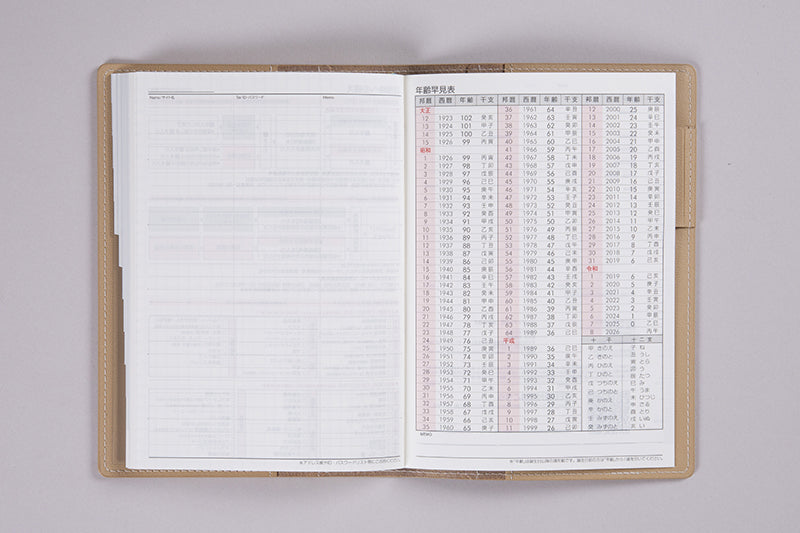 Name/サイト名 User ID・パスワード Memo
年齢早見表
邦暦 西暦 年齢 干支
大正
12 1923 102 癸亥
13 1924 101 甲子
14 1925 100 乙丑
15 1926 99 丙寅
昭和
1 1926 99 丙寅
2 1927 98 丁卯
3 1928 97 戊辰
4 1929 96 己巳
5 1930 95 庚午
6 1931 94 辛未
7 1932 93 壬申
8 1933 92 癸酉
9 1934 91 甲戌
10 1935 90 乙亥
11 1936 89 丙子
12 1937 88 丁丑
13 1938 87 戊寅
14 1939 86 己卯
15 1940 85 庚辰
16 1941 84 辛巳
17 1942 83 壬午
18 1943 82 癸未
19 1944 81 甲申
20 1945 80 乙酉
21 1946 79 丙戌
22 1947 78 丁亥
23 1948 77 戊子
24 1949 76 己丑
25 1950 75 庚寅
26 1951 74 辛卯
27 1952 73 壬辰
28 1953 72 癸巳
29 1954 71 甲午
30 1955 70 乙未
31 1956 69 丙申
32 1957 68 丁酉
33 1958 67 戊戌
34 1959 66 己亥
35 1960 65 庚子
邦暦 西暦 年齢 干支
36 1961 64 辛丑
37 1962 63 壬寅
38 1963 62 癸卯
39 1964 61 甲辰
40 1965 60 乙巳
41 1966 59 丙午
42 1967 58 丁未
43 1968 57 戊申
44 1969 56 己酉
45 1970 55 庚戌
46 1971 54 辛亥
47 1972 53 壬子
48 1973 52 癸丑
49 1974 51 甲寅
50 1975 50 乙卯
51 1976 49 丙辰
52 1977 48 丁巳
53 1978 47 戊午
54 1979 46 己未
55 1980 45 庚申
56 1981 44 辛酉
57 1982 43 壬戌
58 1983 42 癸亥
59 1984 41 甲子
60 1985 40 乙丑
61 1986 39 丙寅
62 1987 38 丁卯
63 1988 37 戊辰
64 1989 36 己巳
平成
1 1989 36 己巳
2 1990 35 庚午
3 1991 34 辛未
4 1992 33 壬申
5 1993 32 癸酉
6 1994 31 甲戌
7 1995 30 乙亥
8 1996 29 丙子
9 1997 28 丁丑
10 1998 27 戊寅
11 1999 26 己卯
邦暦 西暦 年齢 干支
12 2000 25 庚辰
13 2001 24 辛巳
14 2002 23 壬午
15 2003 22 癸未
16 2004 21 甲申
17 2005 20 乙酉
18 2006 19 丙戌
19 2007 18 丁亥
20 2008 17 戊子
21 2009 16 己丑
22 2010 15 庚寅
23 2011 14 辛卯
24 2012 13 壬辰
25 2013 12 癸巳
26 2014 11 甲午
27 2015 10 乙未
28 2016 9 丙申
29 2017 8 丁酉
30 2018 7 戊戌
31 2019 6 己亥
令和
1 2019 6 己亥
2 2020 5 庚子
3 2021 4 辛丑
4 2022 3 壬寅
5 2023 2 癸卯
6 2024 1 甲辰
7 2025 0 乙巳
8 2026 丙午
十干 十二支
甲 きのえ 子 ね
乙 きのと 丑 うし
丙 ひのえ 寅 とら
丁 ひのと 卯 う
戊 つちのえ 辰 たつ
己 つちのと 巳 み
庚 かのえ 午 うま
辛 かのと 未 ひつじ
壬 みずのえ 申 さる
癸 みずのと 酉 とり
戌 いぬ
亥 い
MEMO